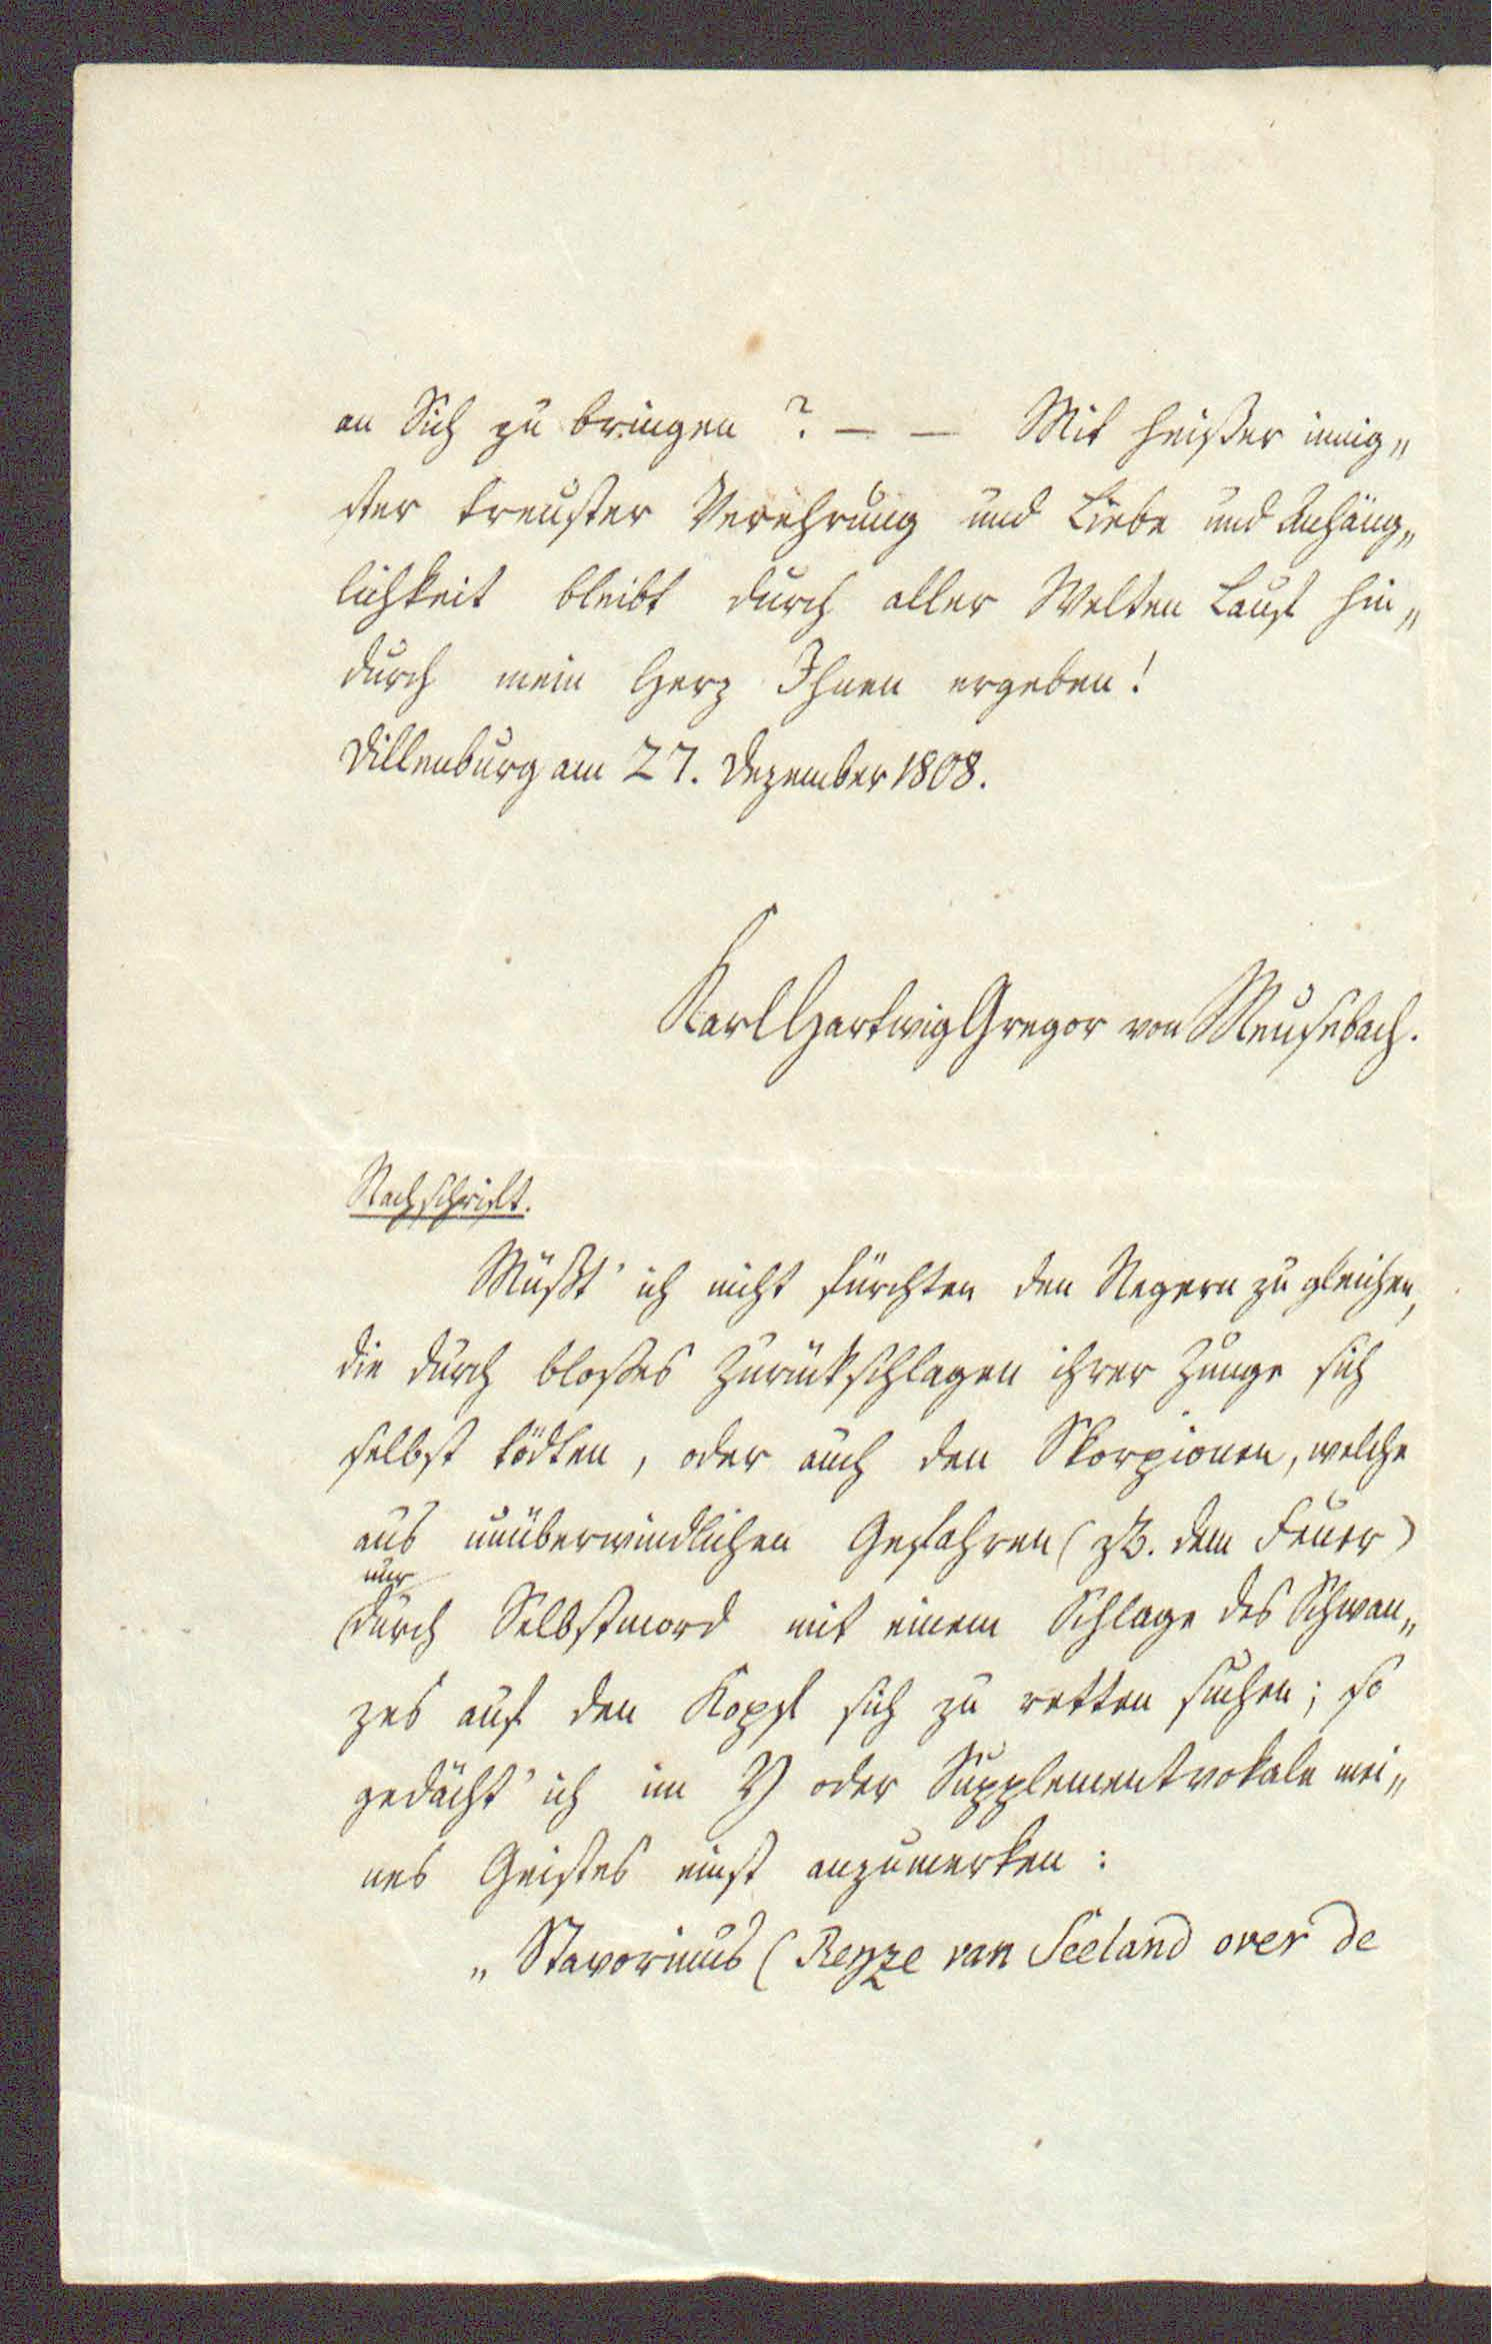 an Sich zu bringen? — — Mit heißer innig„
ster treuster Verehrung und Liebe und Anhäng„
lichkeit bleibt durch aller Welten Lauf hin„
durch mein Herz Ihnen ergeben!
Dillenburg am 27. Dezember 1808.
Karl Hartwig Gregor von Meusebach.
Nachschrift.
Müßt' ich nicht fürchten den Negern zu gleichen,
die durch bloßes Zurückschlagen ihrer Zunge sich
selbst tödten, oder auch den Skorpionen, welche
aus unüberwindlichen Gefahren (zB. dem Feuer)
nur
durch Selbstmord mit einem Schlage des Schwan„
zes auf den Kopf sich zu retten suchen; so
gedächt' ich im Y oder Supplementvokale mei„
nes Geistes einst anzumerken:
„Stavorinus (Reyze van Seeland over de